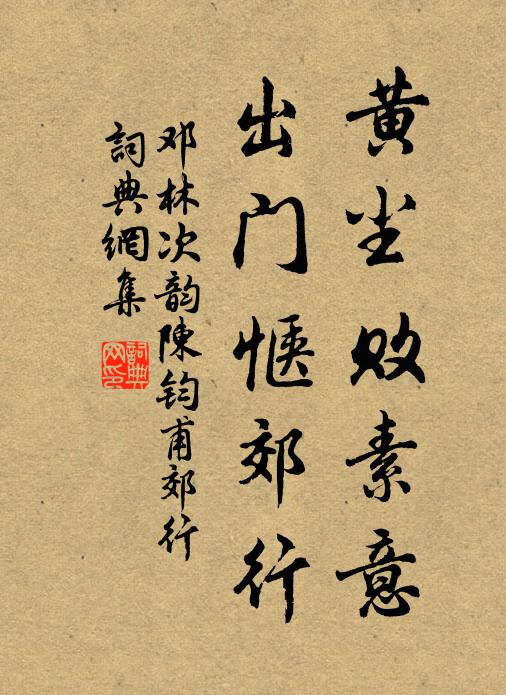 黄尘败素意
出门惬郊行
邓林次韵陳钧甫郊行
詞典網集
詞典網印